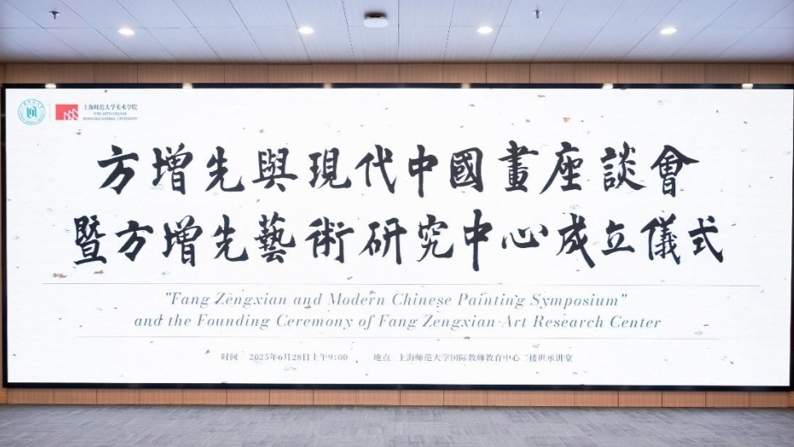 上海师范大学美术学院
FINE ARTS COLLEGE
SHANGHAI NORMAL UNIVERSITY
方增先與現代中國畫座談會
暨方增先藝術研究中心成立儀式
"Fang Zengxian and Modern Chinese Painting Symposium"
and the Founding Ceremony of Fang Zengxian Art Research Center
时间 2025年6月28日上午9:00 地点 上海师范大学国际教师教育中心二楼世承讲堂